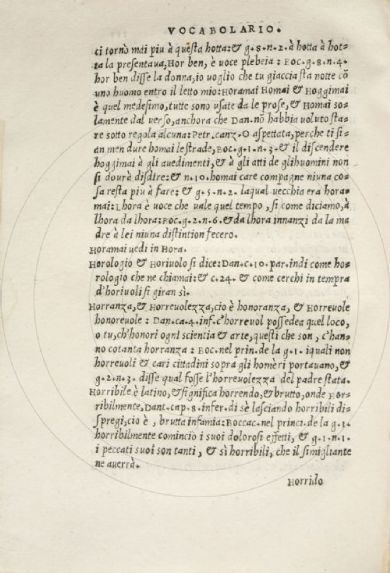 VOCABOLARIO.
ci tornò mai piu à questa hotta: & g.8.n.2. à hotta à hot-
ta la presentaua, Hor ben, è uoce plebeia: Boc.g.8.n.4.
hor ben disse la donna, io uoglio che tu giaccia sta notte cõ
uno huomo entro il letto mio: Horamai Homai & Hoggimai
è quel medesimo, tutte sono usate da le prose, & Homai so-
lamente dal uerso, anchora che Dan. nõ habbia uoluto sta-
re sotto regola alcuna: Petr. canz. O aspettata, perche ti si-
an men dure homai le strade, Boc.g.1.n.3. & il discendere
hoggimai à gli auedimenti, & à gli atti de gli huomini non
si dourè disdire: & n.10. homai care compagne niuna co-
sa resta piu à fare: & g.5.n.2. laqual uecchia era hora-
mai: Lhora è uoce che uale quel tempo, si come diciamo, à
lhora da lhora: Boc.g.2.n.6. & da lhora innanzi da la ma
dre à lei niuna distintion fecero.
Horamai uedi in Hora.
Horologio & Horiuolo si dice: Dan.c.10.par. indi come ho-
rologio che ne chiami: & c.24. & come cerchi in tempra
d'horiuoli si giran sì.
Horranza, & Horreuolezza, cio è honoranza, & Horreuole
honoreuole: Dan.ca.4.inf. c'horreuol possedea quel loco,
o tu, ch'honori ogni scientia & arte, questi che son, c'han-
no cotanta horranza: Boc. nel prin. de la g.1. iquali non
horreuoli & cari cittadini sopra gli homèri portauano, &
g.2.n.3. disse qual fosse l'horreuolezza del padre stata.
Horribile è latino, & significa horrendo, & brutto, onde Hor-
ribilmente, Dant. cap.8. infer. di sè lasciando horribili di-
spregi, cio è, brutta infamia: Boccac. nel princi. de la g.1.
horribilmente comincio i suoi dolorosi effetti, & g.1.n.1.
i peccati suoi son tanti, & sì horribili, che il simigliante
ne auerrà.
Horrido